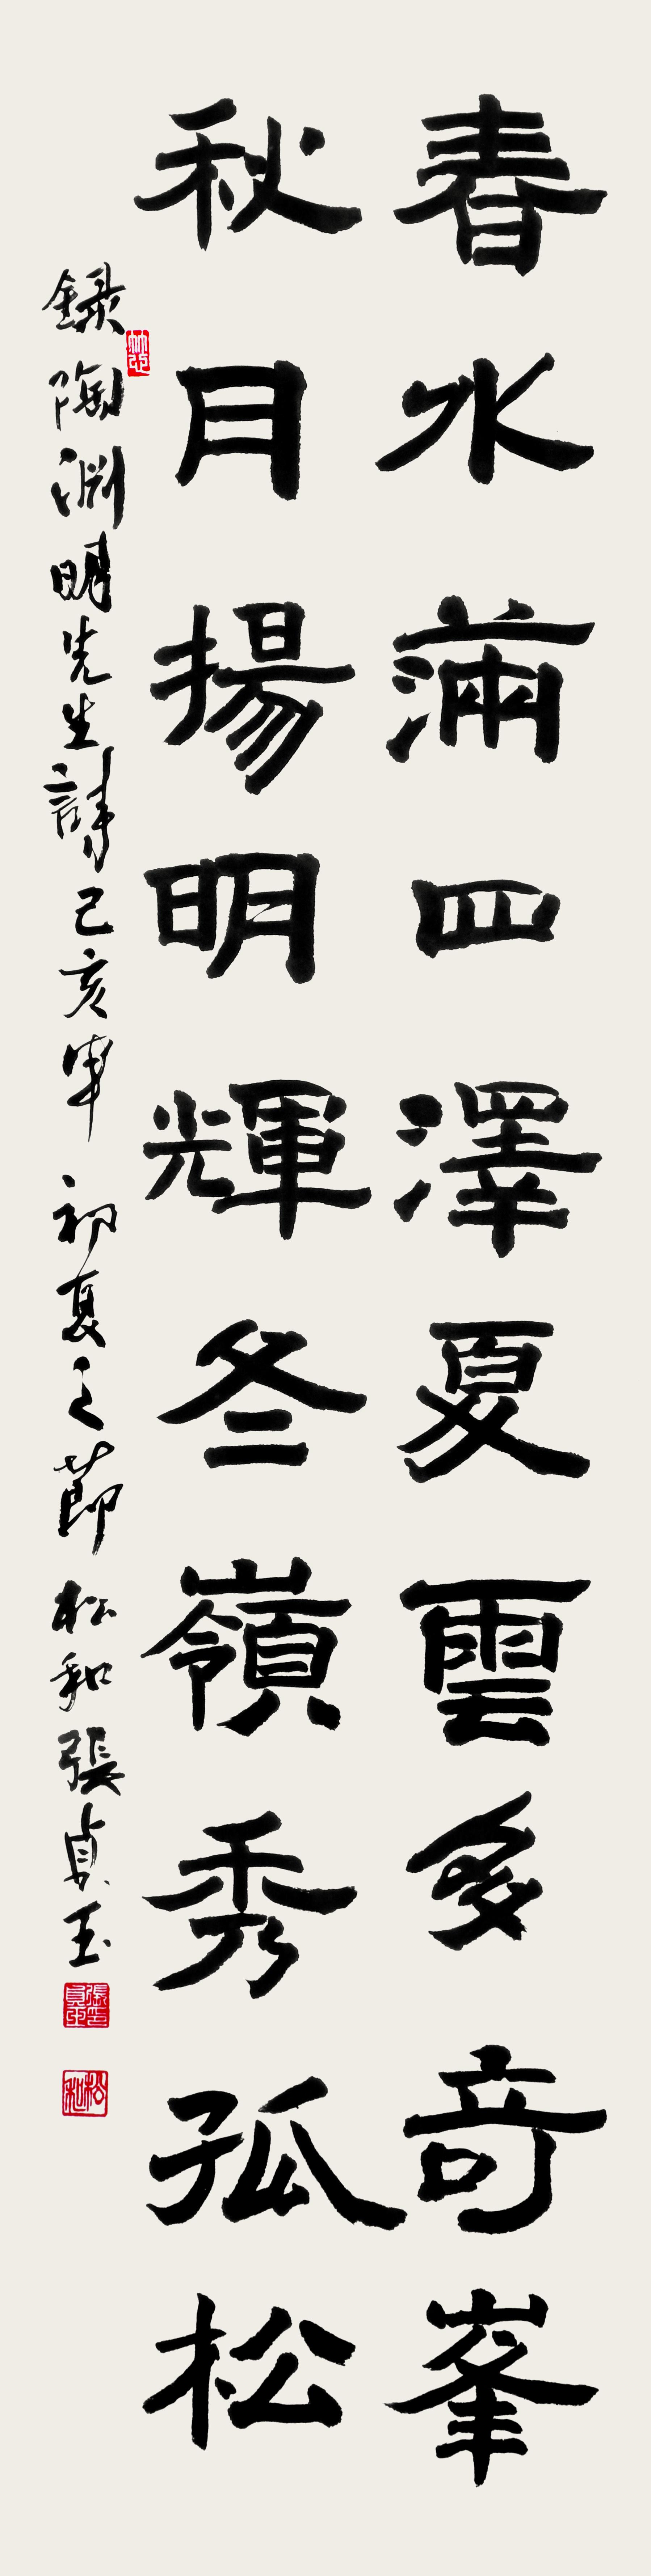 春水滿四澤夏雲多奇峯
秋月揚明輝冬嶺秀孤松
錄陶淵明先生詩己亥年初夏之節松和張貞玉
張貞玉印
松和